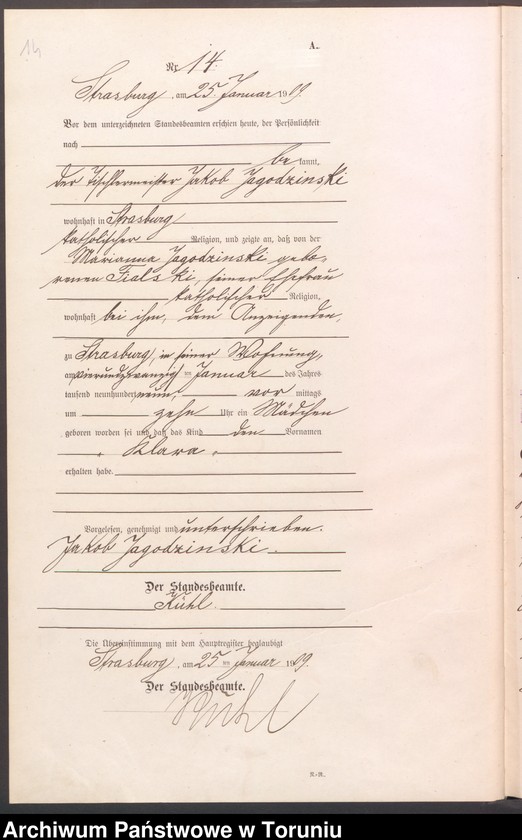 14
A.
Nr. 14.
Strasburg, am 25. Januar 1909.
Vor dem unterzeichneten Standesbeamten erschien heute, der Persönlichkeit
nach
be kannt,
der Tischlermeister Jakob Jagodzinski
wohnhaft in Strasburg
katholischer Religion, und zeigte an, daß von der
Marianna Jagodzinski gebo-
renen Fialski, seiner Ehefrau
katholischer Religion,
wohnhaft bei ihm, dem Anzeigenden,
zu Strasburg, in seiner Wohnung,
am vierundzwanzigsten Januar des Jahres
tausend neunhundert neun, vor mittags
um zehn Uhr ein Mädchen
geboren worden sei und daß das Kind den Vornamen
„ Klara „
erhalten habe.
Vorgelesen, genehmigt und unterschrieben.
Jakob Jagodzinski.
Der Standesbeamte.
Kühl.
Die Übereinstimmung mit dem Hauptregister beglaubigt
Strasburg, am 25 ten Januar 1909.
Der Standesbeamte.
Kühl
R.-R.
Archiwum Państwowe w Toruniu